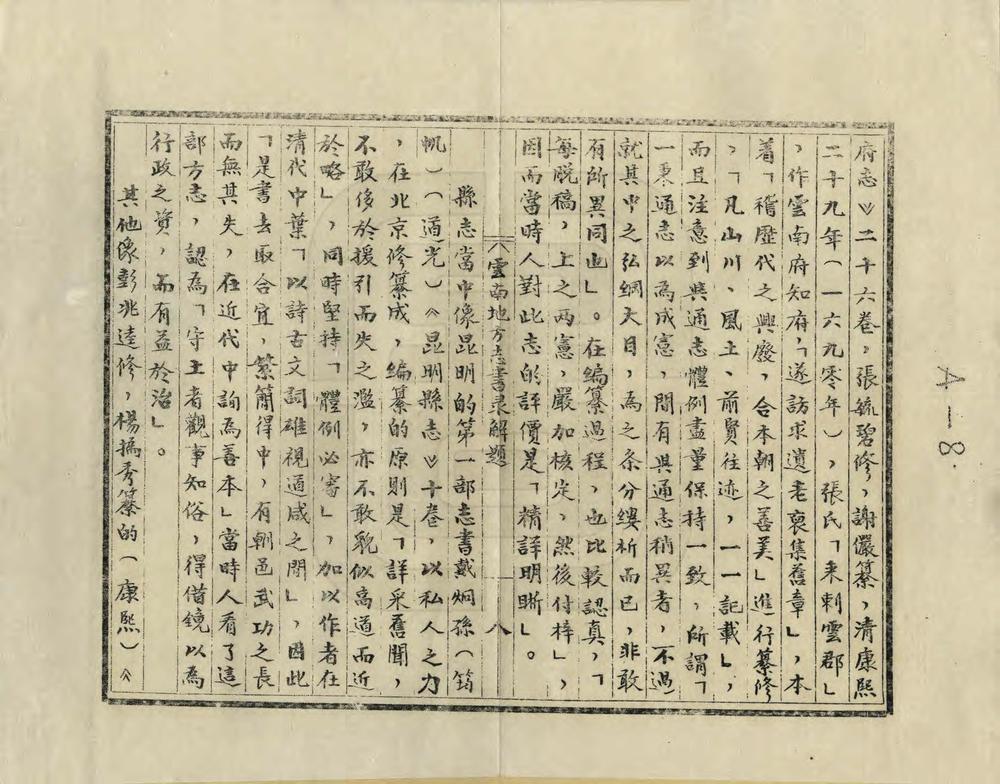 府志》二十六卷，張毓碧修，謝儼纂，清康熙
二十九年（一六九零年），張氏「来刺雲郡」
，作雲南府知府，「遂訪求遺老裒集舊章」，本
着「稽歷代之興廢，合本朝之善美」進行纂修
，「凡山川、風土、前賢往迹，一一記載」，
而且注意到與通志體例盡量保持一致，所謂「
一秉通志以為成憲，間有與通志稍異者，不過
就其中之弘綱大目，為之条分縷析而已，非敢
有所異同也」。在编纂過程，也比較認真，「
每脱稿，上之两憲，嚴加核定，然後付梓」，
因而當時人對此志的評價是「精詳明晰」。
雲南地方志書录解題 八
縣志當中像昆明的第一部志書戴炯孫（筠
帆）（道光）《昆明縣志》十卷，以私人之力
，在北京修纂成，编纂的原則是「詳采舊聞，
不敢後於援引而失之濫，亦不敢貌似高道而近
於略」，同時堅持「體例必審」，加以作者在
清代中葉「以詩古文詞雄視道咸之間」，因此
「是書去取合宜，繁簡得中，有朝邑武功之長
而無其失，在近代中詢為善本」當時人看了這
部方志，認為「守土者觀事知俗，得借鏡以為
行政之資，而有益於治」。
其他像彭兆逵修，楊㩦秀纂的（康熙）《
A—8.